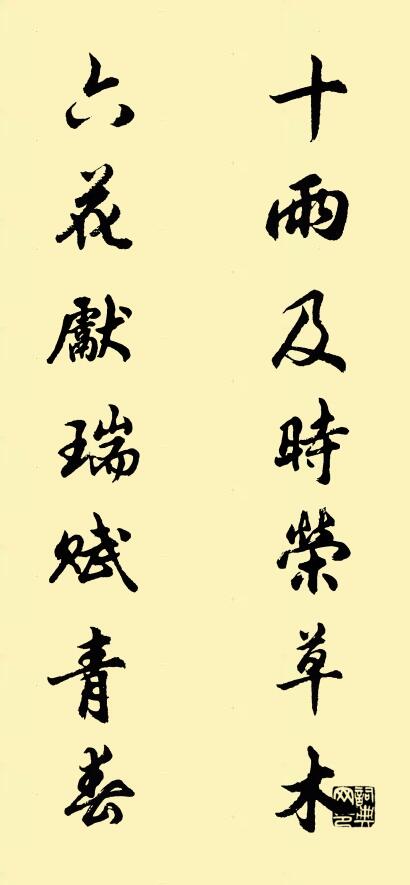 十雨及時榮草木
六花獻瑞賦青春
詞典網印